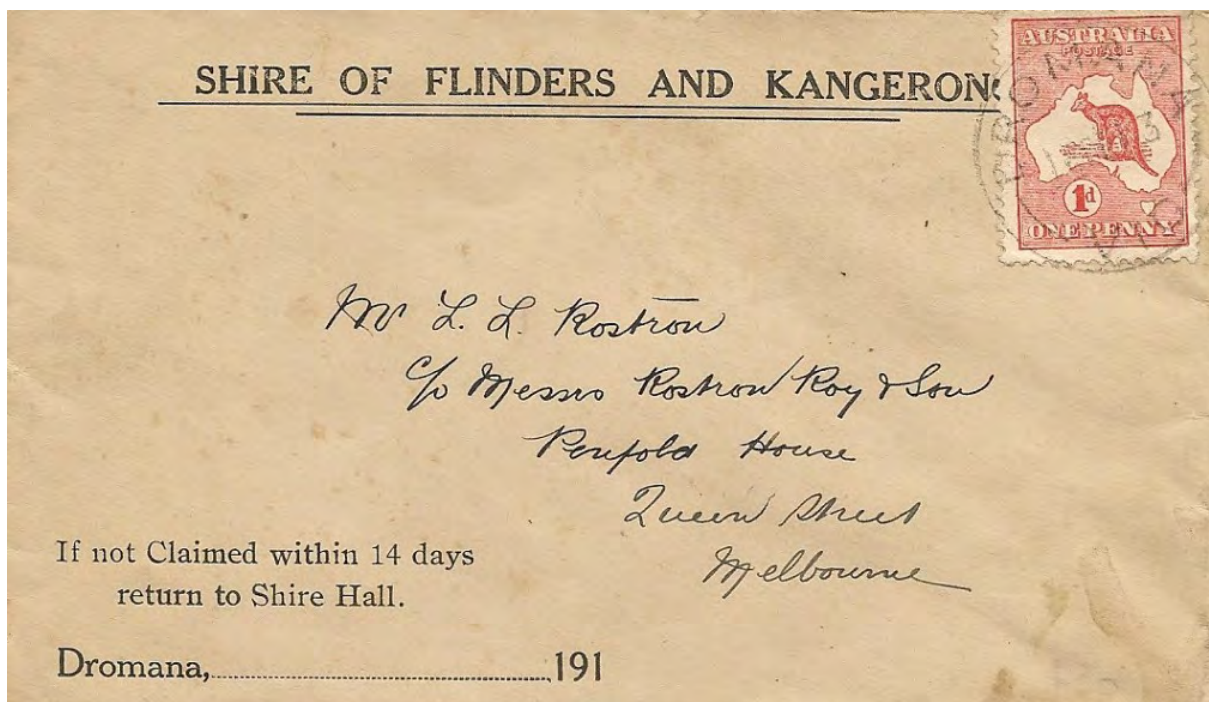 SHIRE OF FLINDERS AND KANGERON
AUSTRALIA
POSTAGE
1d
ONE PENNY
DROMANA
VIC
Mr L. L. Rostron
c/o Messrs Rostron Roy & Son
Penfold House
Queen Street
Melbourne
If not Claimed within 14 days
return to Shire Hall.
Dromana, 191